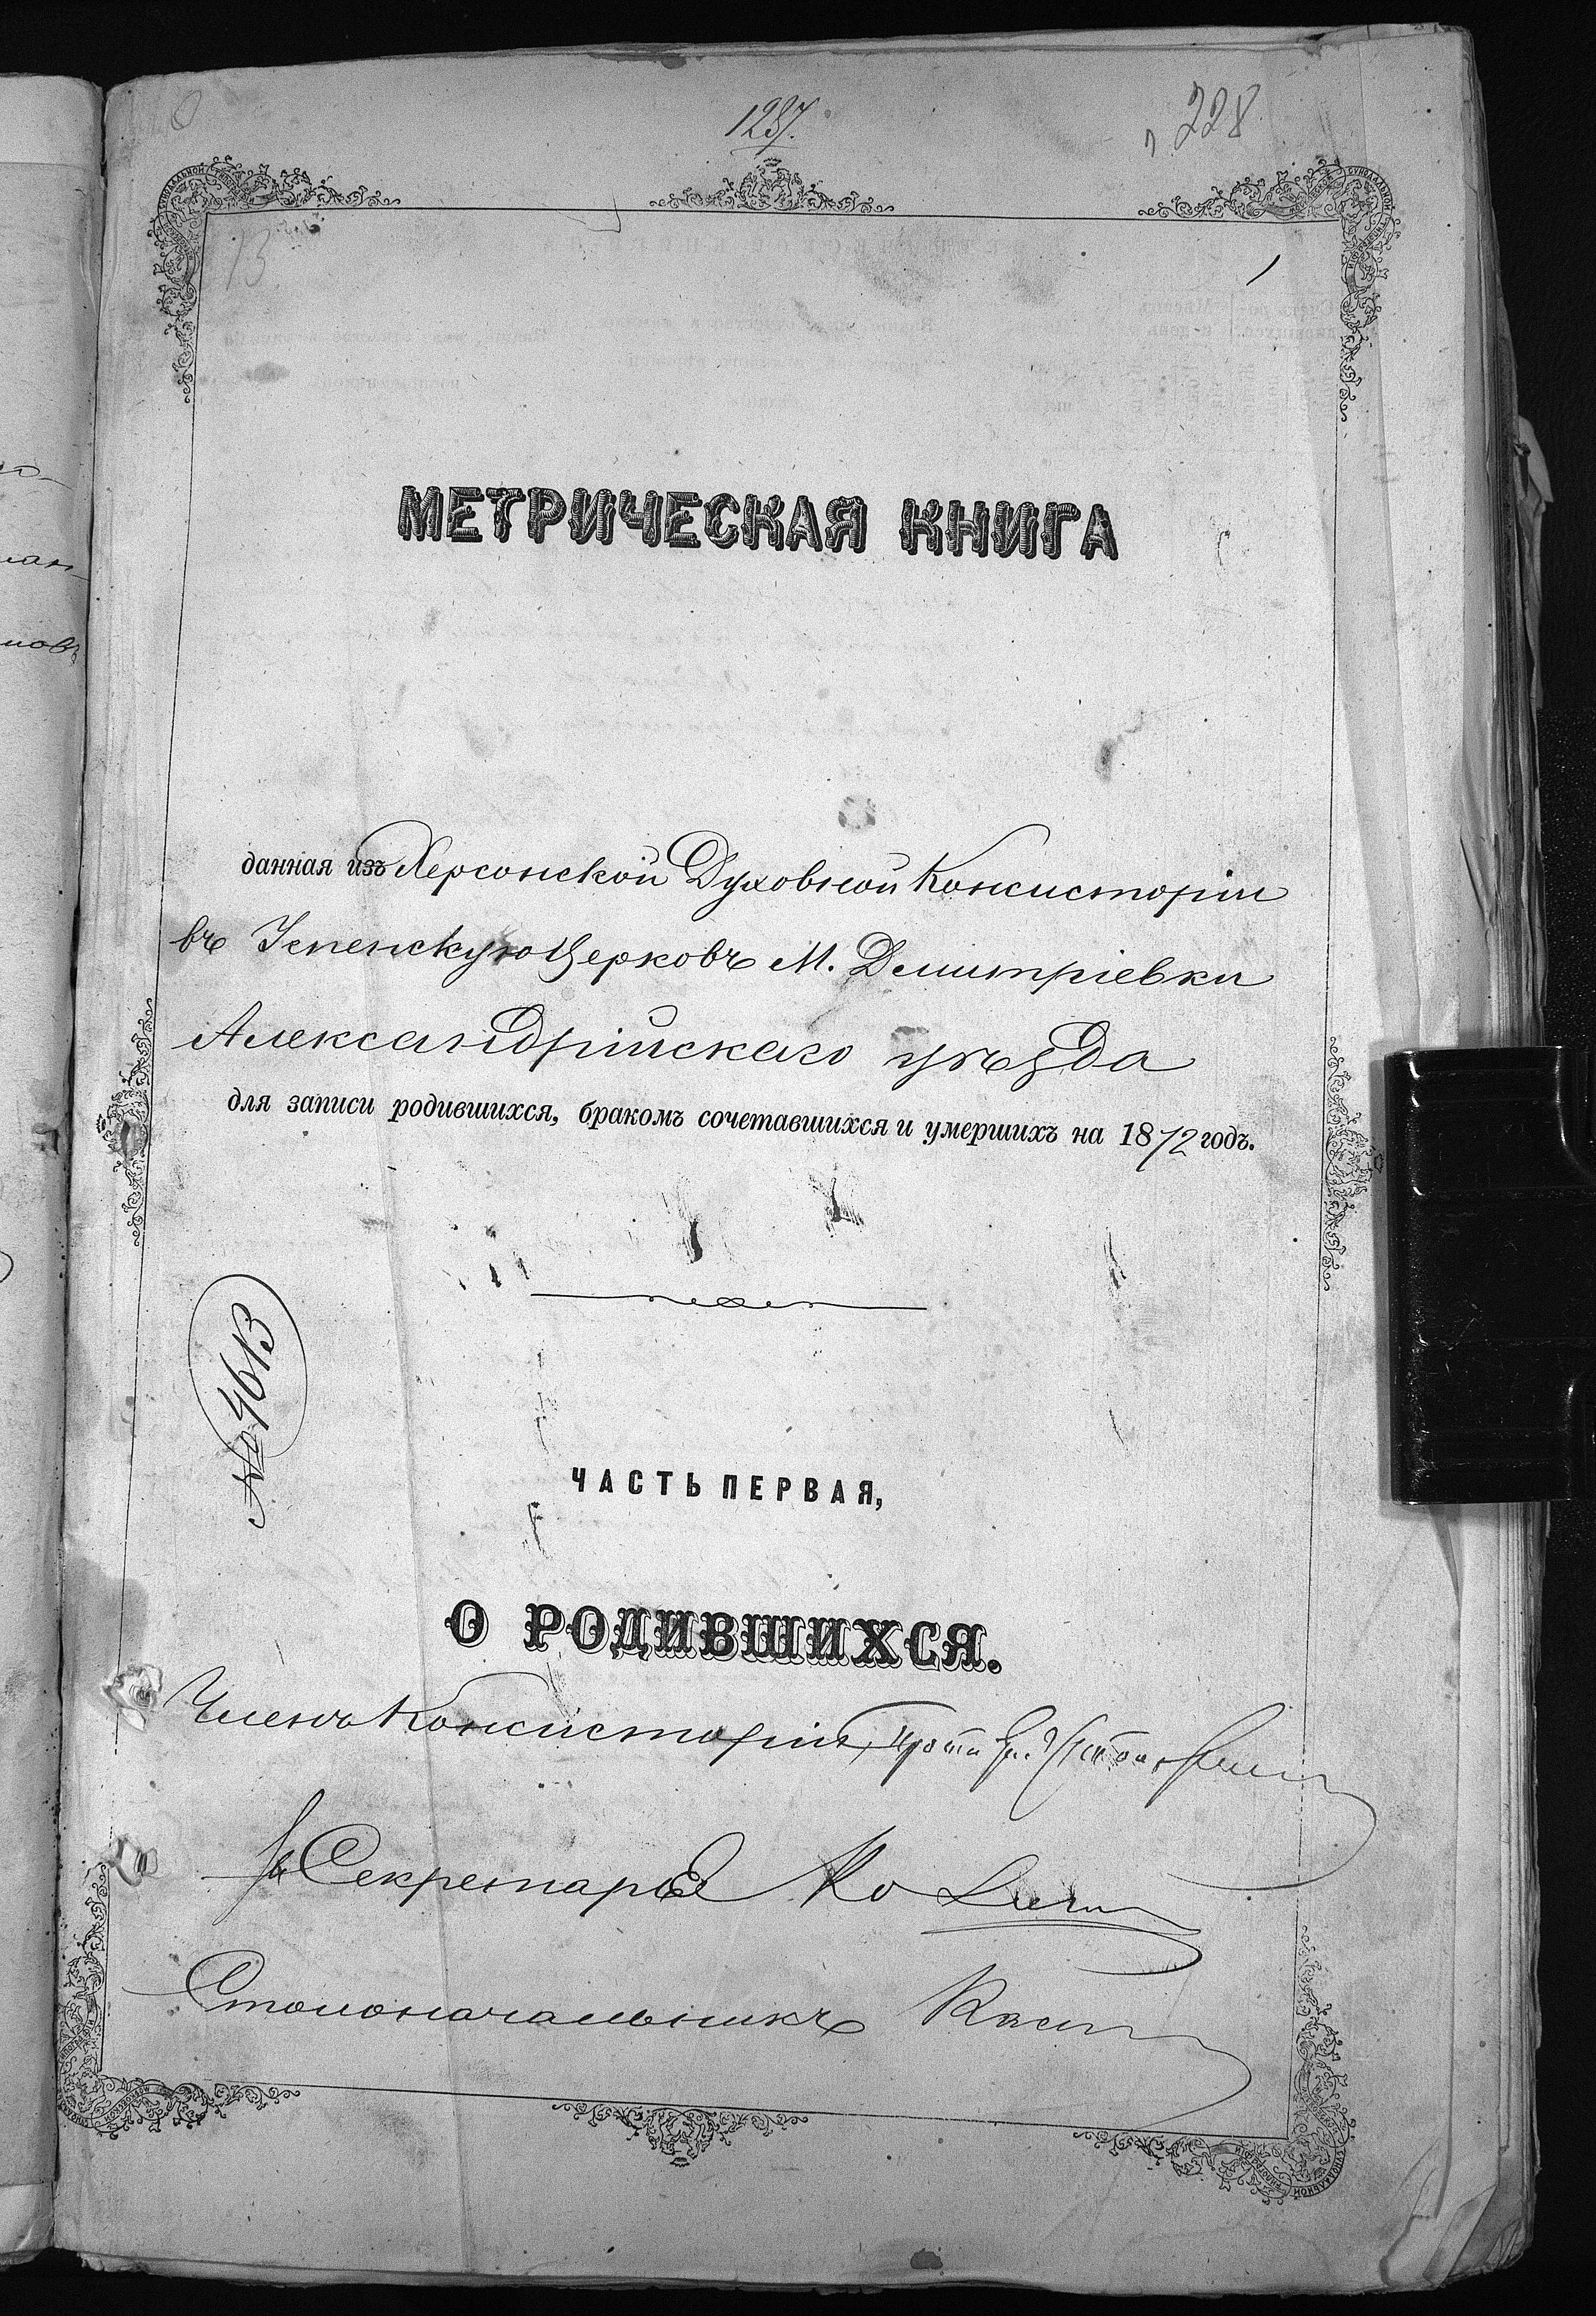 1237.
228
13
МЕТРИЧЕСКАЯ КНИГА
данная изъ Херсонской Духовной Консисторіи
въ Успенскую Церковь М. Дмитріевки
Александрійскаго уѣзда
для записи родившихся, бракомъ сочетавшихся и умершихъ на 1872 годъ.
№ 4613
ЧАСТЬ ПЕРВАЯ,
О РОДИВШИХСЯ.
Членъ Консисторіи,
Секретаря
Столоначальникъ